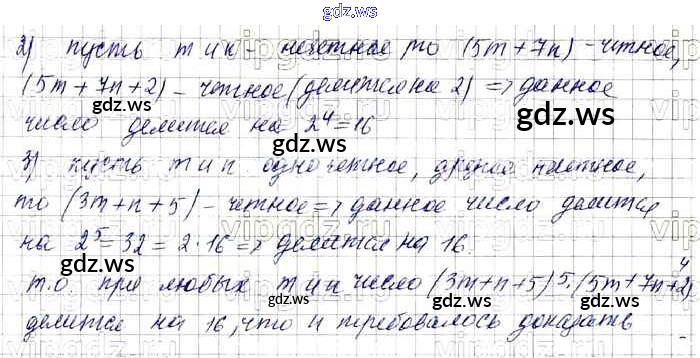 gdz.ws
2) пусть m и n - нечетное то (5m+7n) - четное,
(5m+7n+2) - четное (делится на 2) => данное
число делится на 2^4=16
3) пусть m и n одно четное, другое нечетное,
то (3m+n+5) - четное => данное число делится
на 2^5=32=2·16 => делится на 16.
т.о. при любых m и n число (3m+n+5)^5·(5m+7n+2)^4
делится на 16, что и требовалось доказать
gdz.ws
gdz.ws
gdz.ws
gdz.ws
gdz.ws
gdz.ws
gdz.ws